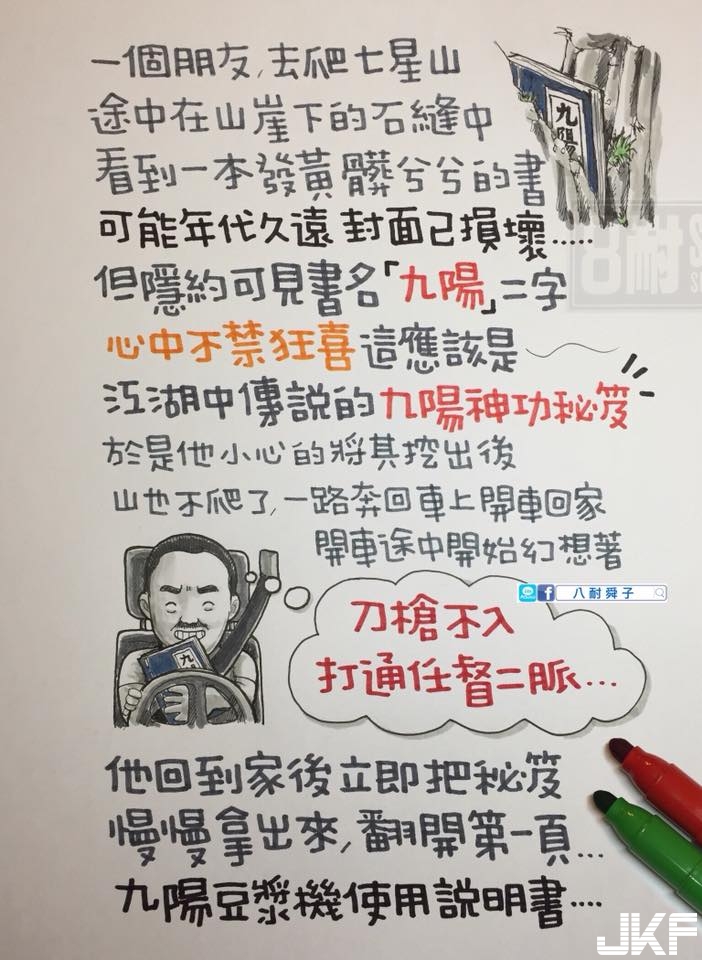 一個朋友,去爬七星山
途中在山崖下的石縫中
看到一本發黃髒兮兮的書
可能年代久遠 封面已損壞.....
但隱約可見書名「九陽」二字
心中不禁狂喜這應該是
江湖中傳說的九陽神功秘笈
於是他小心的將其挖出後
山也不爬了,一路奔回車上開車回家
開車途中開始幻想著
九陽
八耐舜子
刀槍不入
打通任督二脈...
九
他回到家後立即把秘笈
慢慢拿出來,翻開第一頁...
九陽豆漿機使用說明書....
8耐
JKF